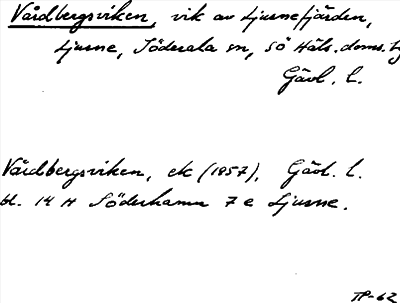 Vårdbergsviken, vik av Ljusnefjärden,
Ljusne, Söderala sn, Sö Häls. doms.
Gävl. l.
Vårdbergsviken, ek (1957), Gävl. l.
bl. 14 H Söderhamn 7 e Ljusne.
TP-62